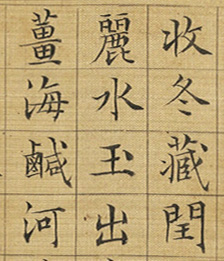 收冬藏閏
麗水玉出
薑海鹹河